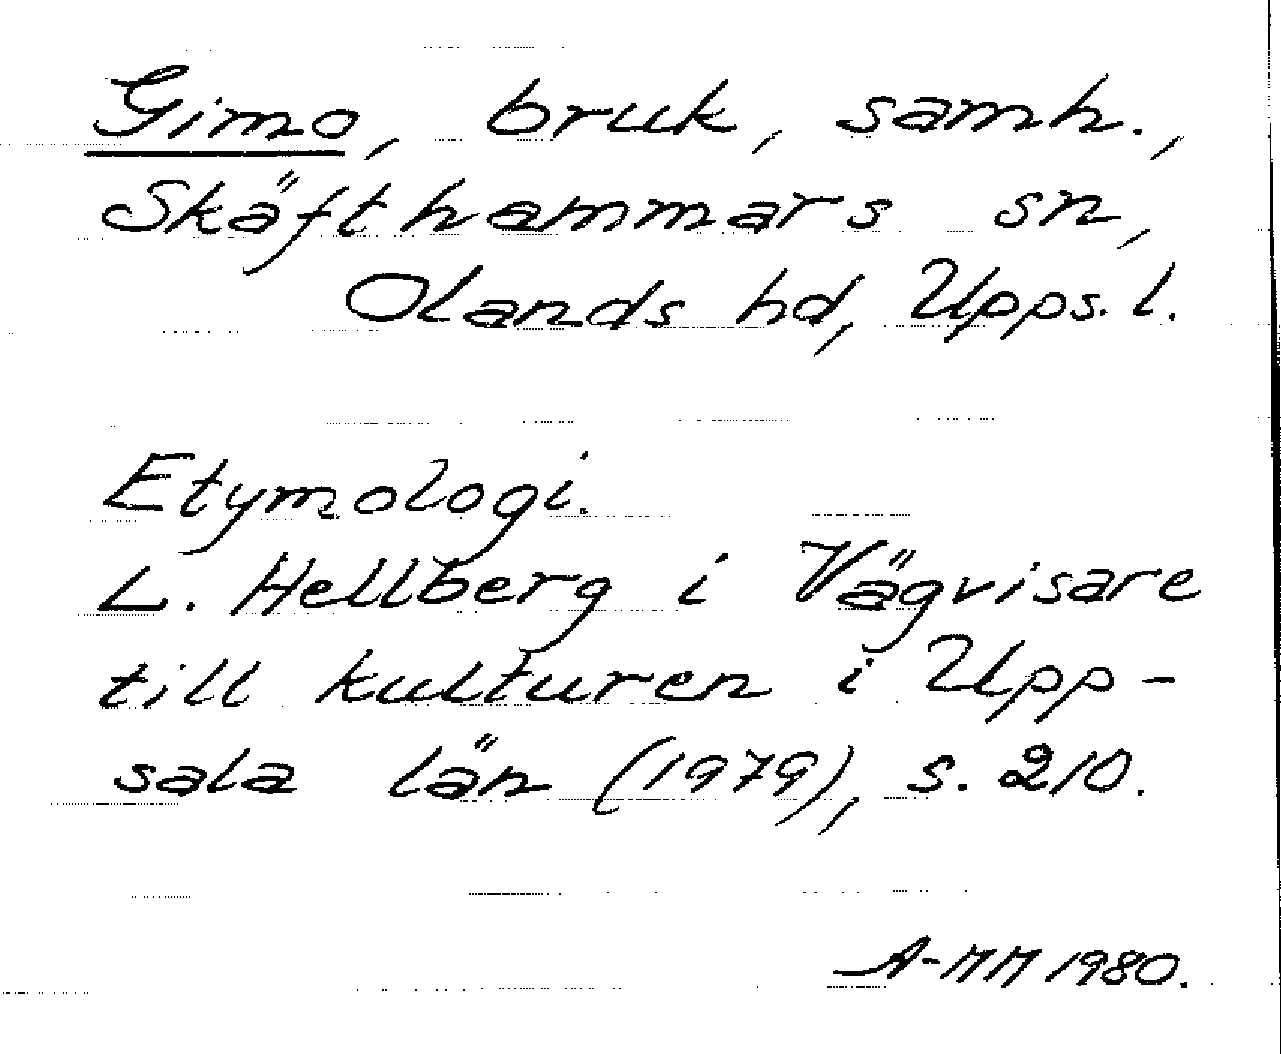 Gimo, bruk, samh.,
Skäfthammars sn,
Olands hd, Upps. l.
Etymologi.
L. Hellberg i Vägvisare
till kulturen i Upp-
sala län (1979), s. 210.
A-MM 1980.